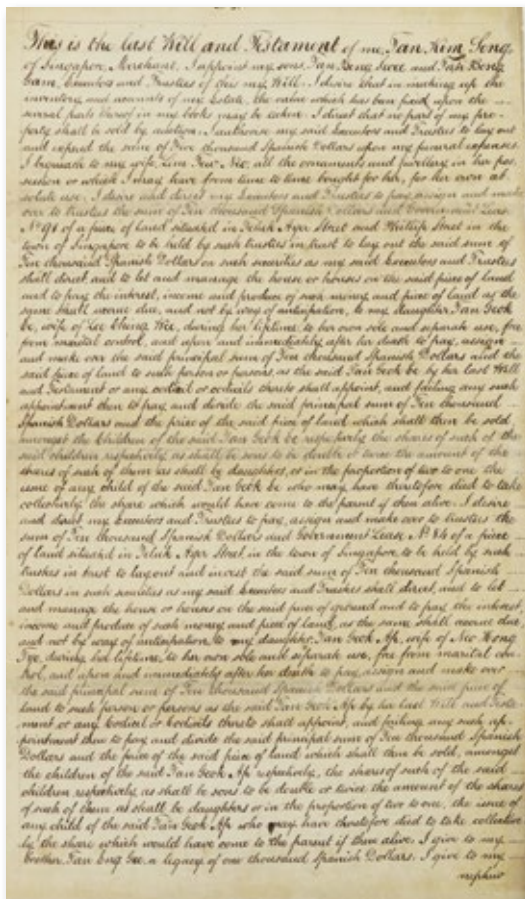 This is the last Will and Testament of me, Tan Kim Seng
of Singapore, Merchant. I appoint my sons, Tan Beng Swee and Tan Beng
Gum, Executors and Trustees of this my Will. I desire that in making up the
inventory and accounts of my Estate, the value which has been fixed upon the
several parts thereof in my books may be taken. I direct that no part of my pro-
perty shall be sold by auction. I authorise my said Executors and Trustees to lay out
and expend the sum of Five thousand Spanish Dollars upon my funeral expenses.
I bequeath to my wife, Lim Neo, all the ornaments and jewellery in her pos
session or which I may have from time to time bought for her, for her own ab
solute use. I desire and direct my Executors and Trustees to pay, assign and make
over to trustees the sum of Ten thousand Spanish Dollars and Government Lease
No 91 of a piece of land situated in Teluk Ayer Street and Phillip Street in the
town of Singapore to be held by such trustees in trust to lay out the said sum of
Ten thousand Spanish Dollars on such securities as my said Executors and Trustees
shall direct, and to let and manage the house or houses on the said piece of land
and to pay the interest, income and produce of such money and piece of land as the
same shall accrue due, and not by way of anticipation, to my daughter, Tan Geok
be, wife of Lee Cheng Wee, during her lifetime to her own sole and separate use, free
from marital control, and upon and immediately after her death to pay, assign
and make over the said principal sum of Ten thousand Spanish Dollars and the
said piece of land to such person or persons, as the said Tan Geok be by her last Will
and Testament or any codicil or codicils thereto shall appoint, and failing any such
appointment then to pay and divide the said principal sum of Ten thousand
Spanish Dollars and the price of the said piece of land which shall then be sold,
amongst the children of the said Tan Geok be respectively the shares of such of the
said children respectively, as shall be sons to be double or twice the amount of the
shares of such of them as shall be daughters, or in the proportion of two to one the
issue of any child of the said Tan Geok be who may have theretofore died to take
collectively the share which would have come to the parent if then alive. I desire
and direct my Executors and Trustees to pay, assign and make over to trustees the
sum of Ten thousand Spanish Dollars and Government Lease, No 86 of a piece
of land situated in Teluk Ayer Street, in the town of Singapore, to be held by such
trustees in trust to lay out and invest the said sum of Ten thousand Spanish
Dollars in such securities as my said Executors and Trustees shall direct, and to let
and manage the house or houses on the said piece of ground and to pay the interest
income and produce of such money and piece of land, as the same shall accrue due,
and not by way of anticipation, to my daughter, Tan Geok Ah, wife of Neo Hong
Tye, during her lifetime, to her own sole and separate use, free from marital con-
trol, and upon and immediately after her death to pay, assign and make over
the said principal sum of Ten thousand Spanish Dollars and the said piece of
land to such person or persons as the said Tan Geok Ah by her last Will and Testa-
ment or any Codicil or Codicils thereto shall appoint, and failing any such ap-
pointment then to pay and divide the said principal sum of Ten thousand Spanish
Dollars and the price of the said piece of land which shall then be sold, amongst
the children of the said Tan Geok Ah respectively, the shares of such of the said
children respectively, as shall be sons to be double or twice the amount of the shares
of such of them as shall be daughters or in the proportion of two to one, the issue of
any child of the said Tan Geok Ah who may have theretofore died to take collective
ly the share which would have come to the parent if then alive. I give to my
brother, Tan Eng Gee, a legacy of one thousand Spanish Dollars. I give to my
nephew